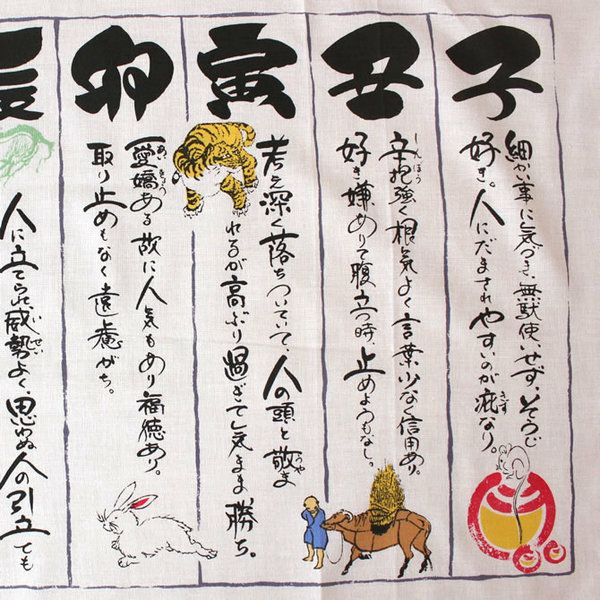 子
細かい事に気づき、無駄使いせず、そうじ
好き。人にだまされやすいのが疵なり。
きず
丑
辛抱強く根気よく言葉少なく信用あり。
しんぼう
好き嫌ありて腹立つ時、止めようもなし。
寅
考え深く落ちついていて、人の頭と敬ま
うや
れるが高ぶり過ぎて気まま勝ち。
卯
愛嬌ある故に人気もあり福徳あり。
あいきょう
取り止めもなく遠慮がち。
辰
人に立てられ威勢よく、思わぬ人の引立ても
いせい